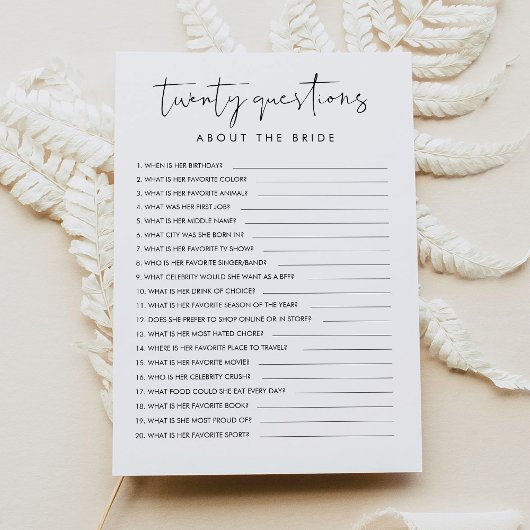 twenty questions
ABOUT THE BRIDE
1. WHEN IS HER BIRTHDAY?
2. WHAT IS HER FAVORITE COLOR?
3. WHAT IS HER FAVORITE ANIMAL?
4. WHAT WAS HER FIRST JOB?
5. WHAT IS HER MIDDLE NAME?
6. WHAT CITY WAS SHE BORN IN?
7. WHAT IS HER FAVORITE TV SHOW?
8. WHO IS HER FAVORITE SINGER/BAND?
9. WHAT CELEBRITY WOULD SHE WANT AS A BFF?
10. WHAT IS HER DRINK OF CHOICE?
11. WHAT IS HER FAVORITE SEASON OF THE YEAR?
12. DOES SHE PREFER TO SHOP ONLINE OR IN STORE?
13. WHAT IS HER MOST HATED CHORE?
14. WHERE IS HER FAVORITE PLACE TO TRAVEL?
15. WHAT IS HER FAVORITE MOVIE?
16. WHO IS HER CELEBRITY CRUSH?
17. WHAT FOOD COULD SHE EAT EVERY DAY?
18. WHAT IS HER FAVORITE BOOK?
19. WHAT IS SHE MOST PROUD OF?
20. WHAT IS HER FAVORITE SPORT?